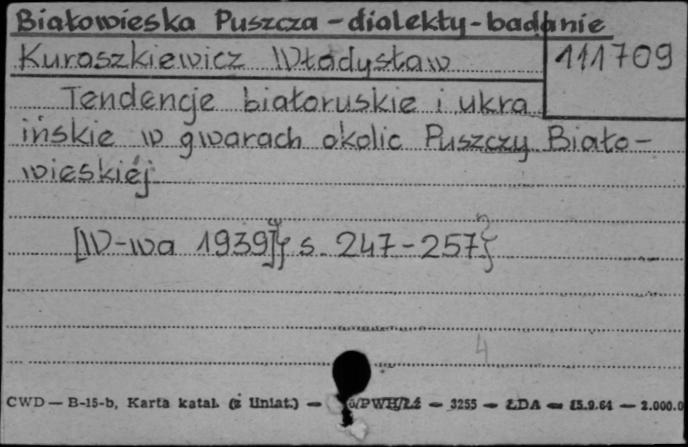 Białowieska Puszcza - dialekty - badanie
Kuraszkiewicz Władysław
111709
Tendencje białoruskie i ukra
ińskie w gwarach okolic Puszczy Biało-
wieskiéj
[W-wa 1939]{s. 247-257}
4
CWD — B-15-b, Karta katal. (z Uniat.) — /PWH/Łź — 3255 — ŁDA — 15.9.64 — 2.000.0